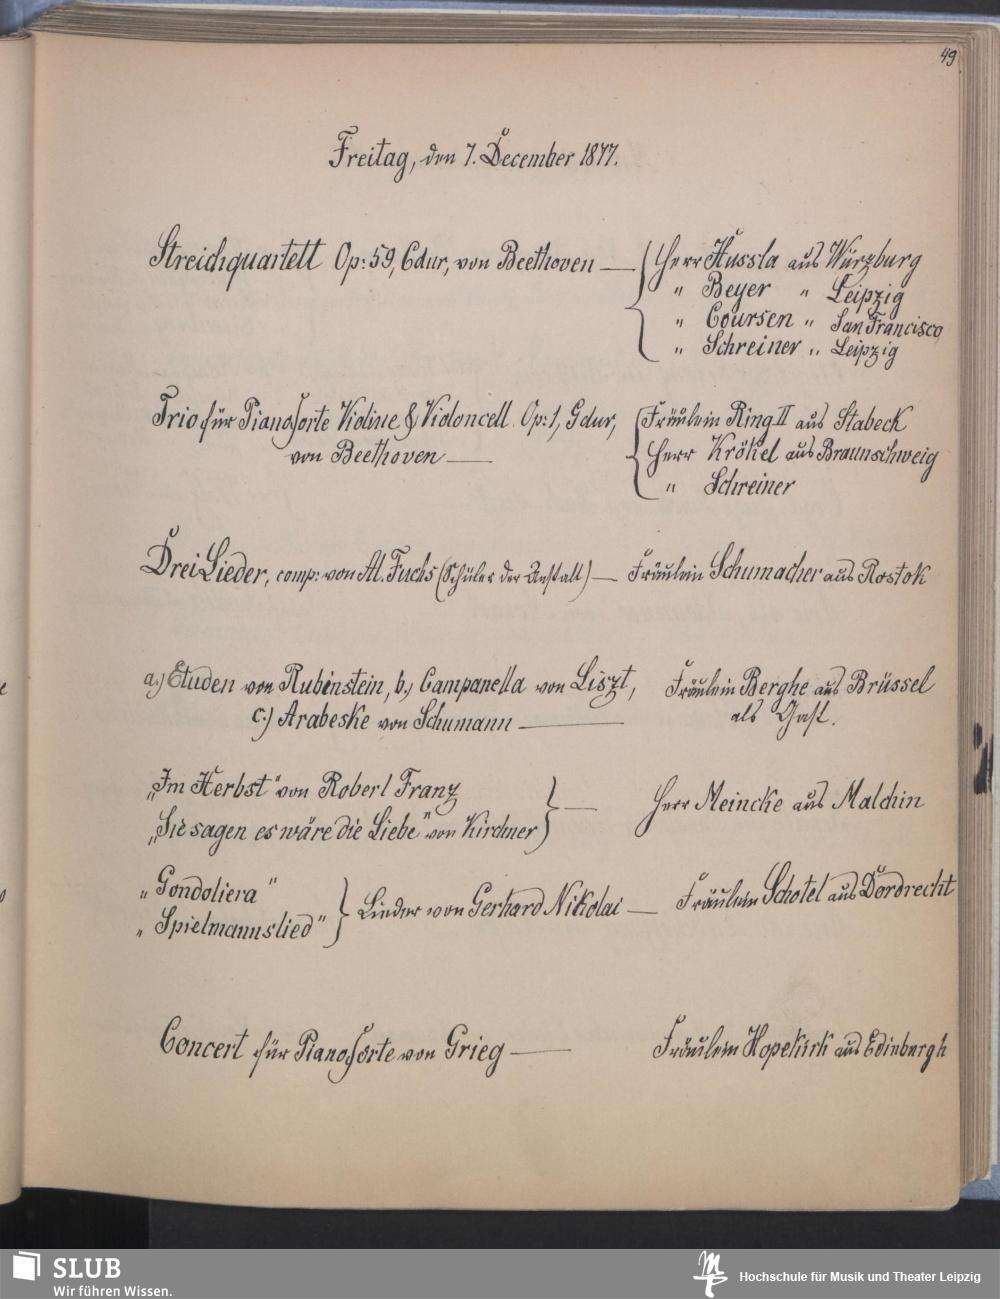 49
Freitag, den 7. December 1877.
Streichquartett Op: 59, Cdur, von Beethoven — Herr Hussla aus Würzburg
" Beyer " Leipzig
" Coursen " San Francisco
" Schreiner " Leipzig
Trio für Pianoforte Violine & Violoncell. Op: 1, Gdur, Fräulein Ring II aus Stabeck
von Beethoven — Herr Krökel aus Braunschweig
" Schreiner
Drei Lieder, comp: von Al. Fuchs (Schüler der Anstalt) — Fräulein Schumacher aus Rostok
a.) Etuden von Rubinstein, b.) Campanella von Liszt, Fräulein Berghe aus Brüssel
c.) Arabeske von Schumann — als Gast.
„Im Herbst" von Roberl Franz
Herr Meincke aus Malchin
„Sie sagen es wäre die Liebe" von Kirchner —
„Gondoliera"
Lieder von Gerhard Nikolai — Fräulein Schotel aus Dordrecht
„Spielmannslied"
Concert für Pianoforte von Grieg — Fräulein Hopekirk aus Edinburgh
SLUB
Wir führen Wissen.
Hochschule für Musik und Theater Leipzig